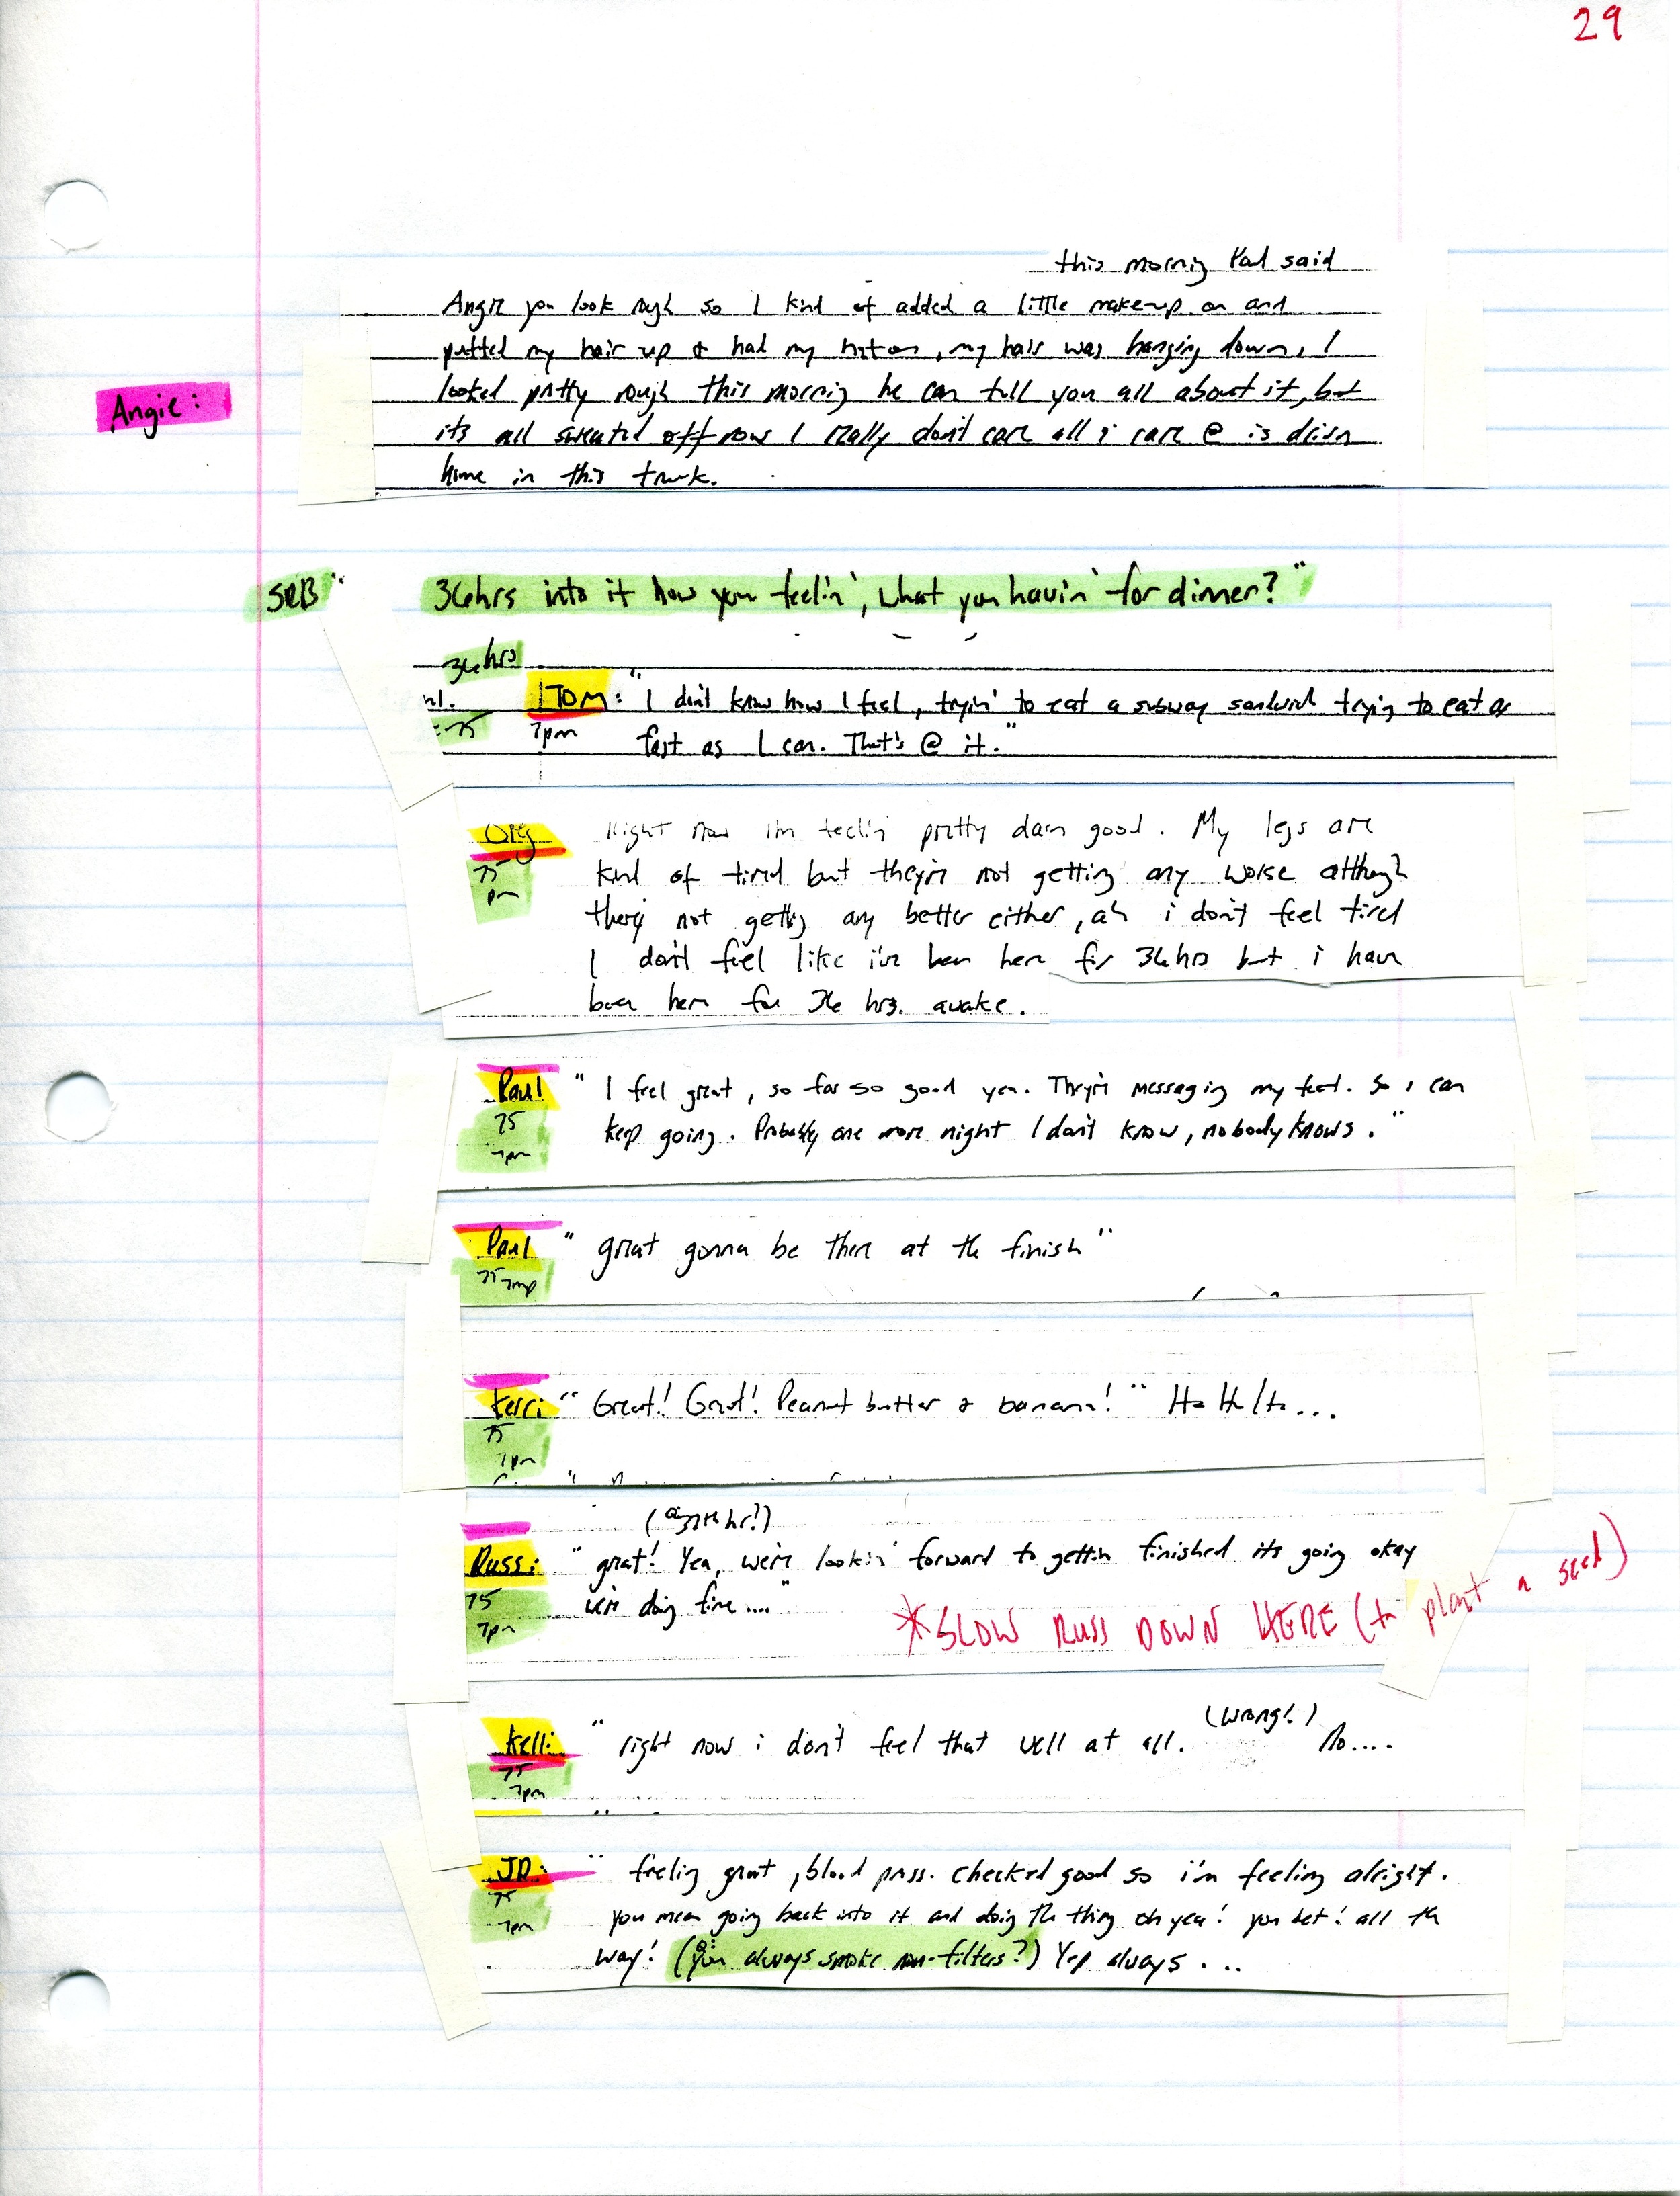 29
this morning Paul said
Angie you look rough so I kind of added a little make-up on and
putted my hair up & had my hat on, my hair was hanging down, I
looked pretty rough this morning he can tell you all about it, but
Angie:
its all sweated off now I really don't care all i care @ is driven
home in this truck.
SRB " 36hrs into it how you feelin', what you havin' for dinner?"
36hrs
TOM: "I don't know how I feel, tryin' to eat a subway sandwich trying to eat as
75 7pm fast as I can. That's @ it."
Greg Right now i'm feelin pretty darn good. My legs are
75 kind of tired but they're not getting any worse although
pm they're not getting any better either, ah i don't feel tired
I don't feel like i've been here for 36hrs but i have
been here for 36 hrs. awake.
Paul " I feel great, so far so good yea. They're messaging my feet. So i can
75 keep going. Probably one more night I don't know, nobody knows."
7pm
Paul " great gonna be there at the finish"
75 7mp
Kerri " Great! Great! Peanut butter & banana!" Ha Ha Ha...
75
7pm
(@37th hr!)
Russ: " great! Yea, we're lookin' forward to gettin finished its going okay
75 we're doing fine...."
7pm
*SLOW RUSS DOWN HERE (to plant a seed)
Kelli " right now i don't feel that well at all. (wrong?) No....
75
7pm
JD: " feeling great, blood press. checked good so i'm feeling alright.
75 you mean going back into it and doing the thing oh yea! you bet! all the
7pm way! (Q: you always smoke non-filters?) Yep always...